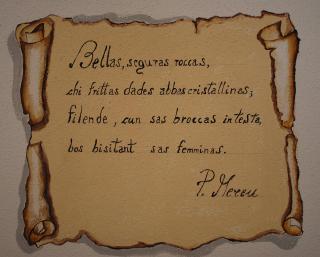 Bellas, seguras roccas,
chi frittas dades abbas cristallinas;
filende, cun sas broccas in testa,
bos bisitant sas femminas.
P. Mereu